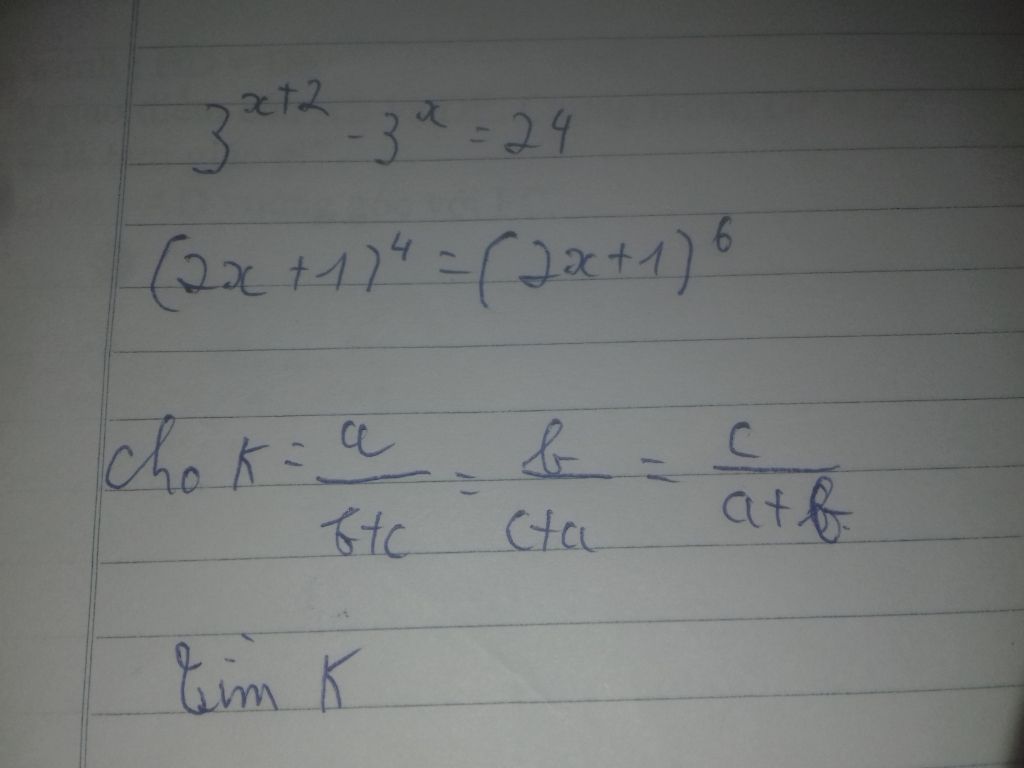 3^{x+2} - 3^x = 24
(2x+1)^4 = (2x+1)^6
cho K = \frac{a}{b+c} = \frac{b}{c+a} = \frac{c}{a+b}
tìm K